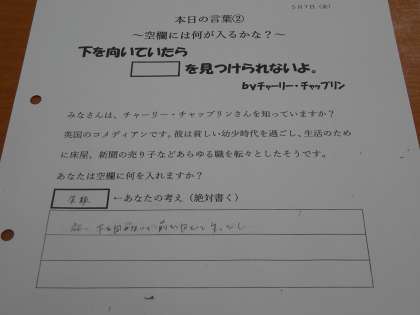 5月7日(金)
本日の言葉②
～空欄には何が入るかな？～
下を向いていたら
を見つけられないよ。
byチャーリー・チャップリン
みなさんは、チャーリー・チャップリンさんを知っていますか？
英国のコメディアンです。彼は貧しい幼少時代を過ごし、生活のため
に床屋、新聞の売り子などあらゆる職を転々としたそうです。
あなたは空欄に何を入れますか？
←あなたの考え（絶対書く）